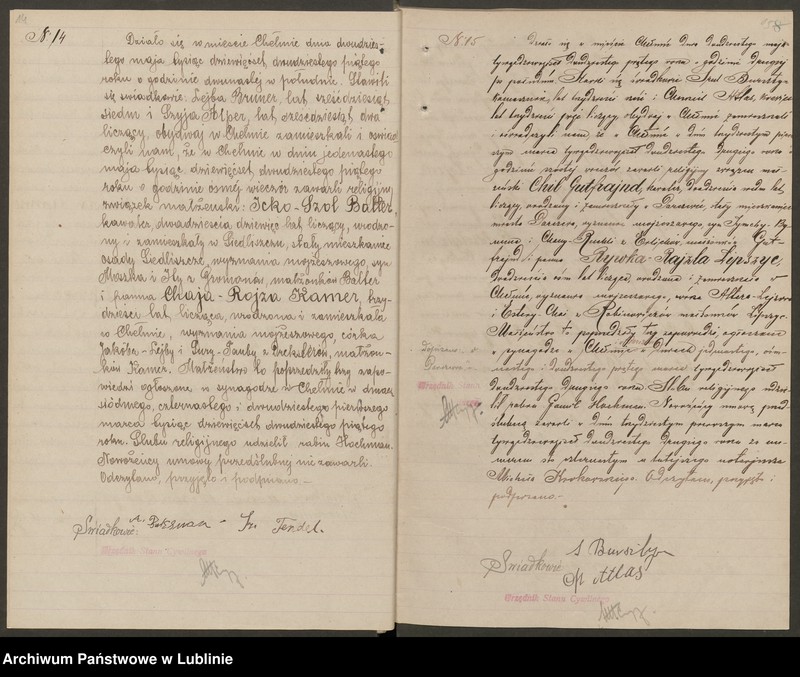 № 14
Działo się w mieście Chełmie dnia dwudzies-
tego maja tysiąc dziewięćset dwudziestego piątego
roku o godzinie dwunastej w południe. Stawili
się świadkowie: Lejba Bruner, lat sześćdziesiąt
siedm i Szyja Alper, lat sześćdziesiąt dwa
liczący, obydwaj w Chełmie zamieszkali i oświad-
czyli nam, że w Chełmie w dniu jedenastego
maja tysiąc dziewięćset dwudziestego piątego
roku o godzinie ósmej wieczór zawarli religijny
związek małżeński: Icko-Szol Balter,
kawaler, dwadzieścia dziewięć lat liczący, urodzo-
ny i zamieszkały w Siedliszczu, stały mieszkaniec
osady Siedliszcze, wyznania mojżeszowego, syn
Moszka i Ity z Gromanów, małżonków Balter
i panna Chaja-Rojza Kamer, trzy-
dzieści lat licząca, urodzona i zamieszkała
w Chełmie, wyznania mojżeszowego, córka
Jakóba-Lejby i Sury-Tauby z małżon-
ków Kamer. Małżeństwo to poprzedziły trzy zapo-
wiedzi ogłoszone w synagodze w Chełmie w dniach
siódmego, czternastego i dwudziestego pierwszego
marca tysiąc dziewięćset dwudziestego piątego
roku. Ślubu religijnego udzielił rabin Hochman.
Nowożeńcy umowy przedślubnej nie zawarli.
Odczytano, przyjęto i podpisano —
Świadkowie:
Urzędnik Stanu Cywilnego
№ 15
Działo się w mieście Chełmie dnia dwudziestego maja
tysiąc dziewięćset dwudziestego piątego roku o godzinie drugiej
po południu. Stawili się świadkowie Srul Bursztyn
lat trzydzieści sześć i Atlas,
lat trzydzieści liczący, obydwaj w Chełmie zamieszkali
i oświadczyli nam, że w Chełmie w dniu trzydziestym pierw-
szym marca tysiąc dziewięćset dwudziestego drugiego roku o
godzinie szóstej wieczór zawarli religijny związek mał-
żeński: Chil Gutfrajnd, kawaler, dwadzieścia lat
liczący, urodzony i zamieszkały w stały mieszkaniec
miasta wyznania mojżeszowego, syn
i Chany-Ruchli z małżonków Gut-
frajnd i panna Rywka-Rajzla Lipszyc,
dwadzieścia lat licząca, urodzona i zamieszkała w
Chełmie, wyznania mojżeszowego, córka
i Estery-Chai z Rabinowiczów małżonków Lipszyc.
Małżeństwo to poprzedziły trzy zapowiedzi ogłoszone
w synagodze w Chełmie w dniach jedenastego, ośm-
nastego i dwudziestego piątego marca tysiąc dziewięćset
dwudziestego drugiego roku. Ślubu religijnego udzie-
lił rabin Hochman. Nowożeńcy umowę przed-
ślubną zawarli w dniu trzydziestym pierwszym marca
tysiąc dziewięćset dwudziestego drugiego roku za nu-
merem sto u tutejszego notarjusza
Odczytano, przyjęto i
podpisano. —
Urzędnik Stanu
Świadkowie S Bursztyn
Atlas
Urzędnik Stanu Cywilnego
Archiwum Państwowe w Lublinie